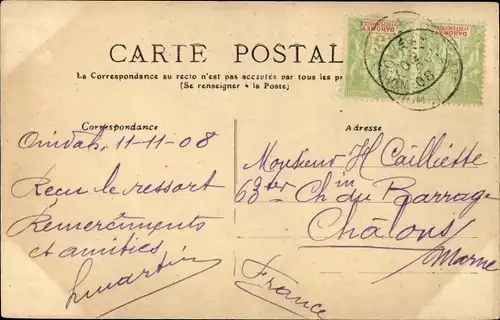 CARTE POSTALE
La Correspondance au recto n'est pas acceptée par tous les pa
(Se renseigner à la Poste)
DAHOMEY
DAHOMEY
Correspondance
Adresse
Ouidah, 11-11-08
Reçu le ressort
Remerciments
et amitiés
Lmartin
Monsieur H Cailliette
63 ter Ch in du Barrage
Châlons
/Marne
France